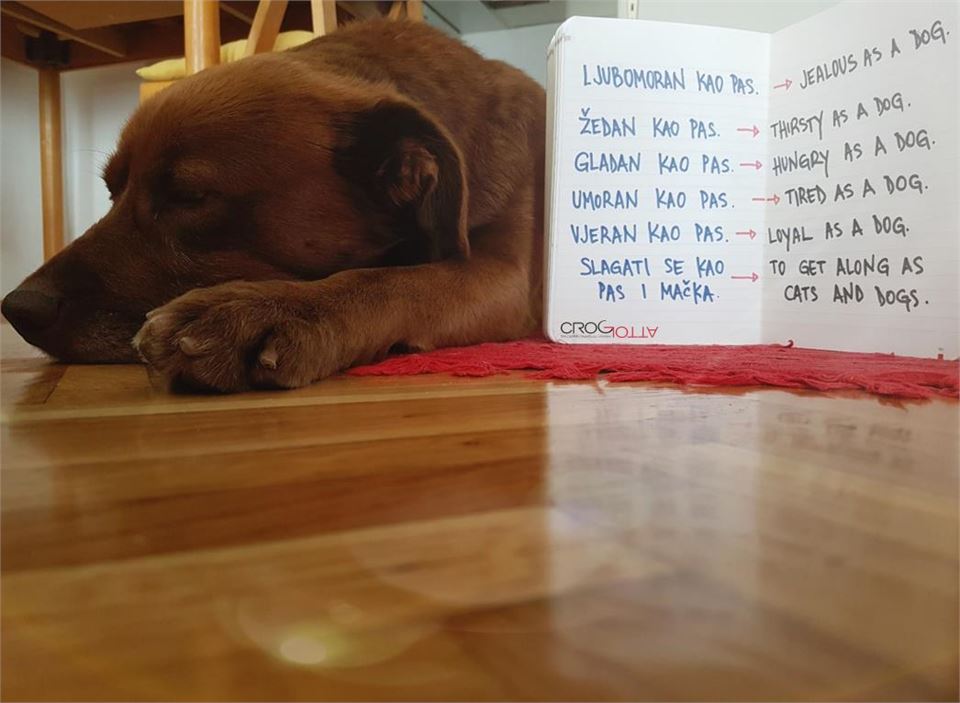 LJUBOMORAN KAO PAS. → JEALOUS AS A DOG.
ŽEDAN KAO PAS. → THIRSTY AS A DOG.
GLADAN KAO PAS. → HUNGRY AS A DOG.
UMORAN KAO PAS. → TIRED AS A DOG.
VJERAN KAO PAS. → LOYAL AS A DOG.
SLAGATI SE KAO → TO GET ALONG AS
PAS I MAČKA. CATS AND DOGS.
CROG